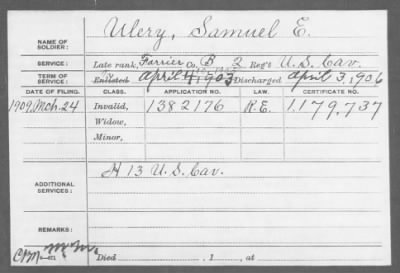 NAME OF SOLDIER: Ulery, Samuel E.
SERVICE: Late rank, Farrier Co. B 2 Reg't U.S. Cav.
TERM OF SERVICE: Enlisted April 4, 1903 Discharged April 3, 1906
DATE OF FILING. CLASS. APPLICATION NO. LAW. CERTIFICATE NO.
1909, Mch. 24 Invalid, 1382176 R.E. 1,179,737
Widow,
Minor,
ADDITIONAL SERVICES: H 13 U.S. Cav.
REMARKS:
Died , 1 , at